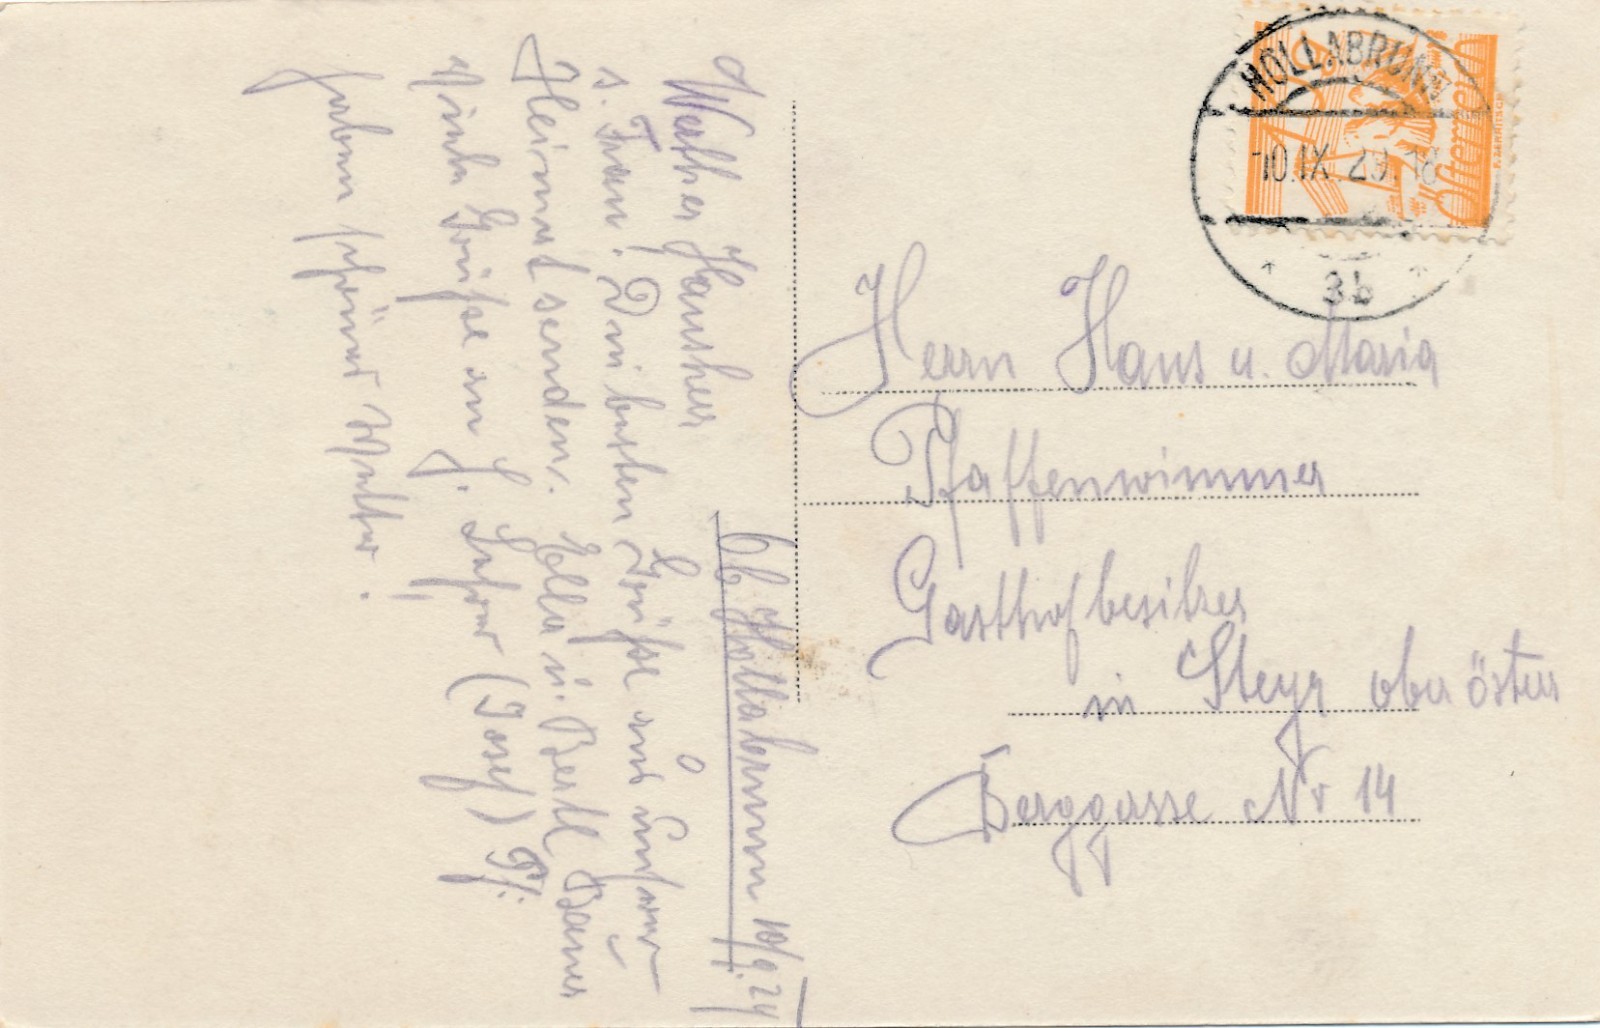 HOLLABRUNN
10.IX.29.18
3b
Österreich
Ob. Hollabrunn 10/9.29
Werther Hausherr
s. Frau! Die besten Grüße aus unserer
Heimat senden. Ella u. Bertl Bauer
Viele Grüße an H. Lehrer (Josef) Pf.
haben schönes Wetter.
Herrn Hans u. Maria
Pfaffenwimmer
Gasthofbesitzer
in Steyr ober öster
Berggasse Nr 14